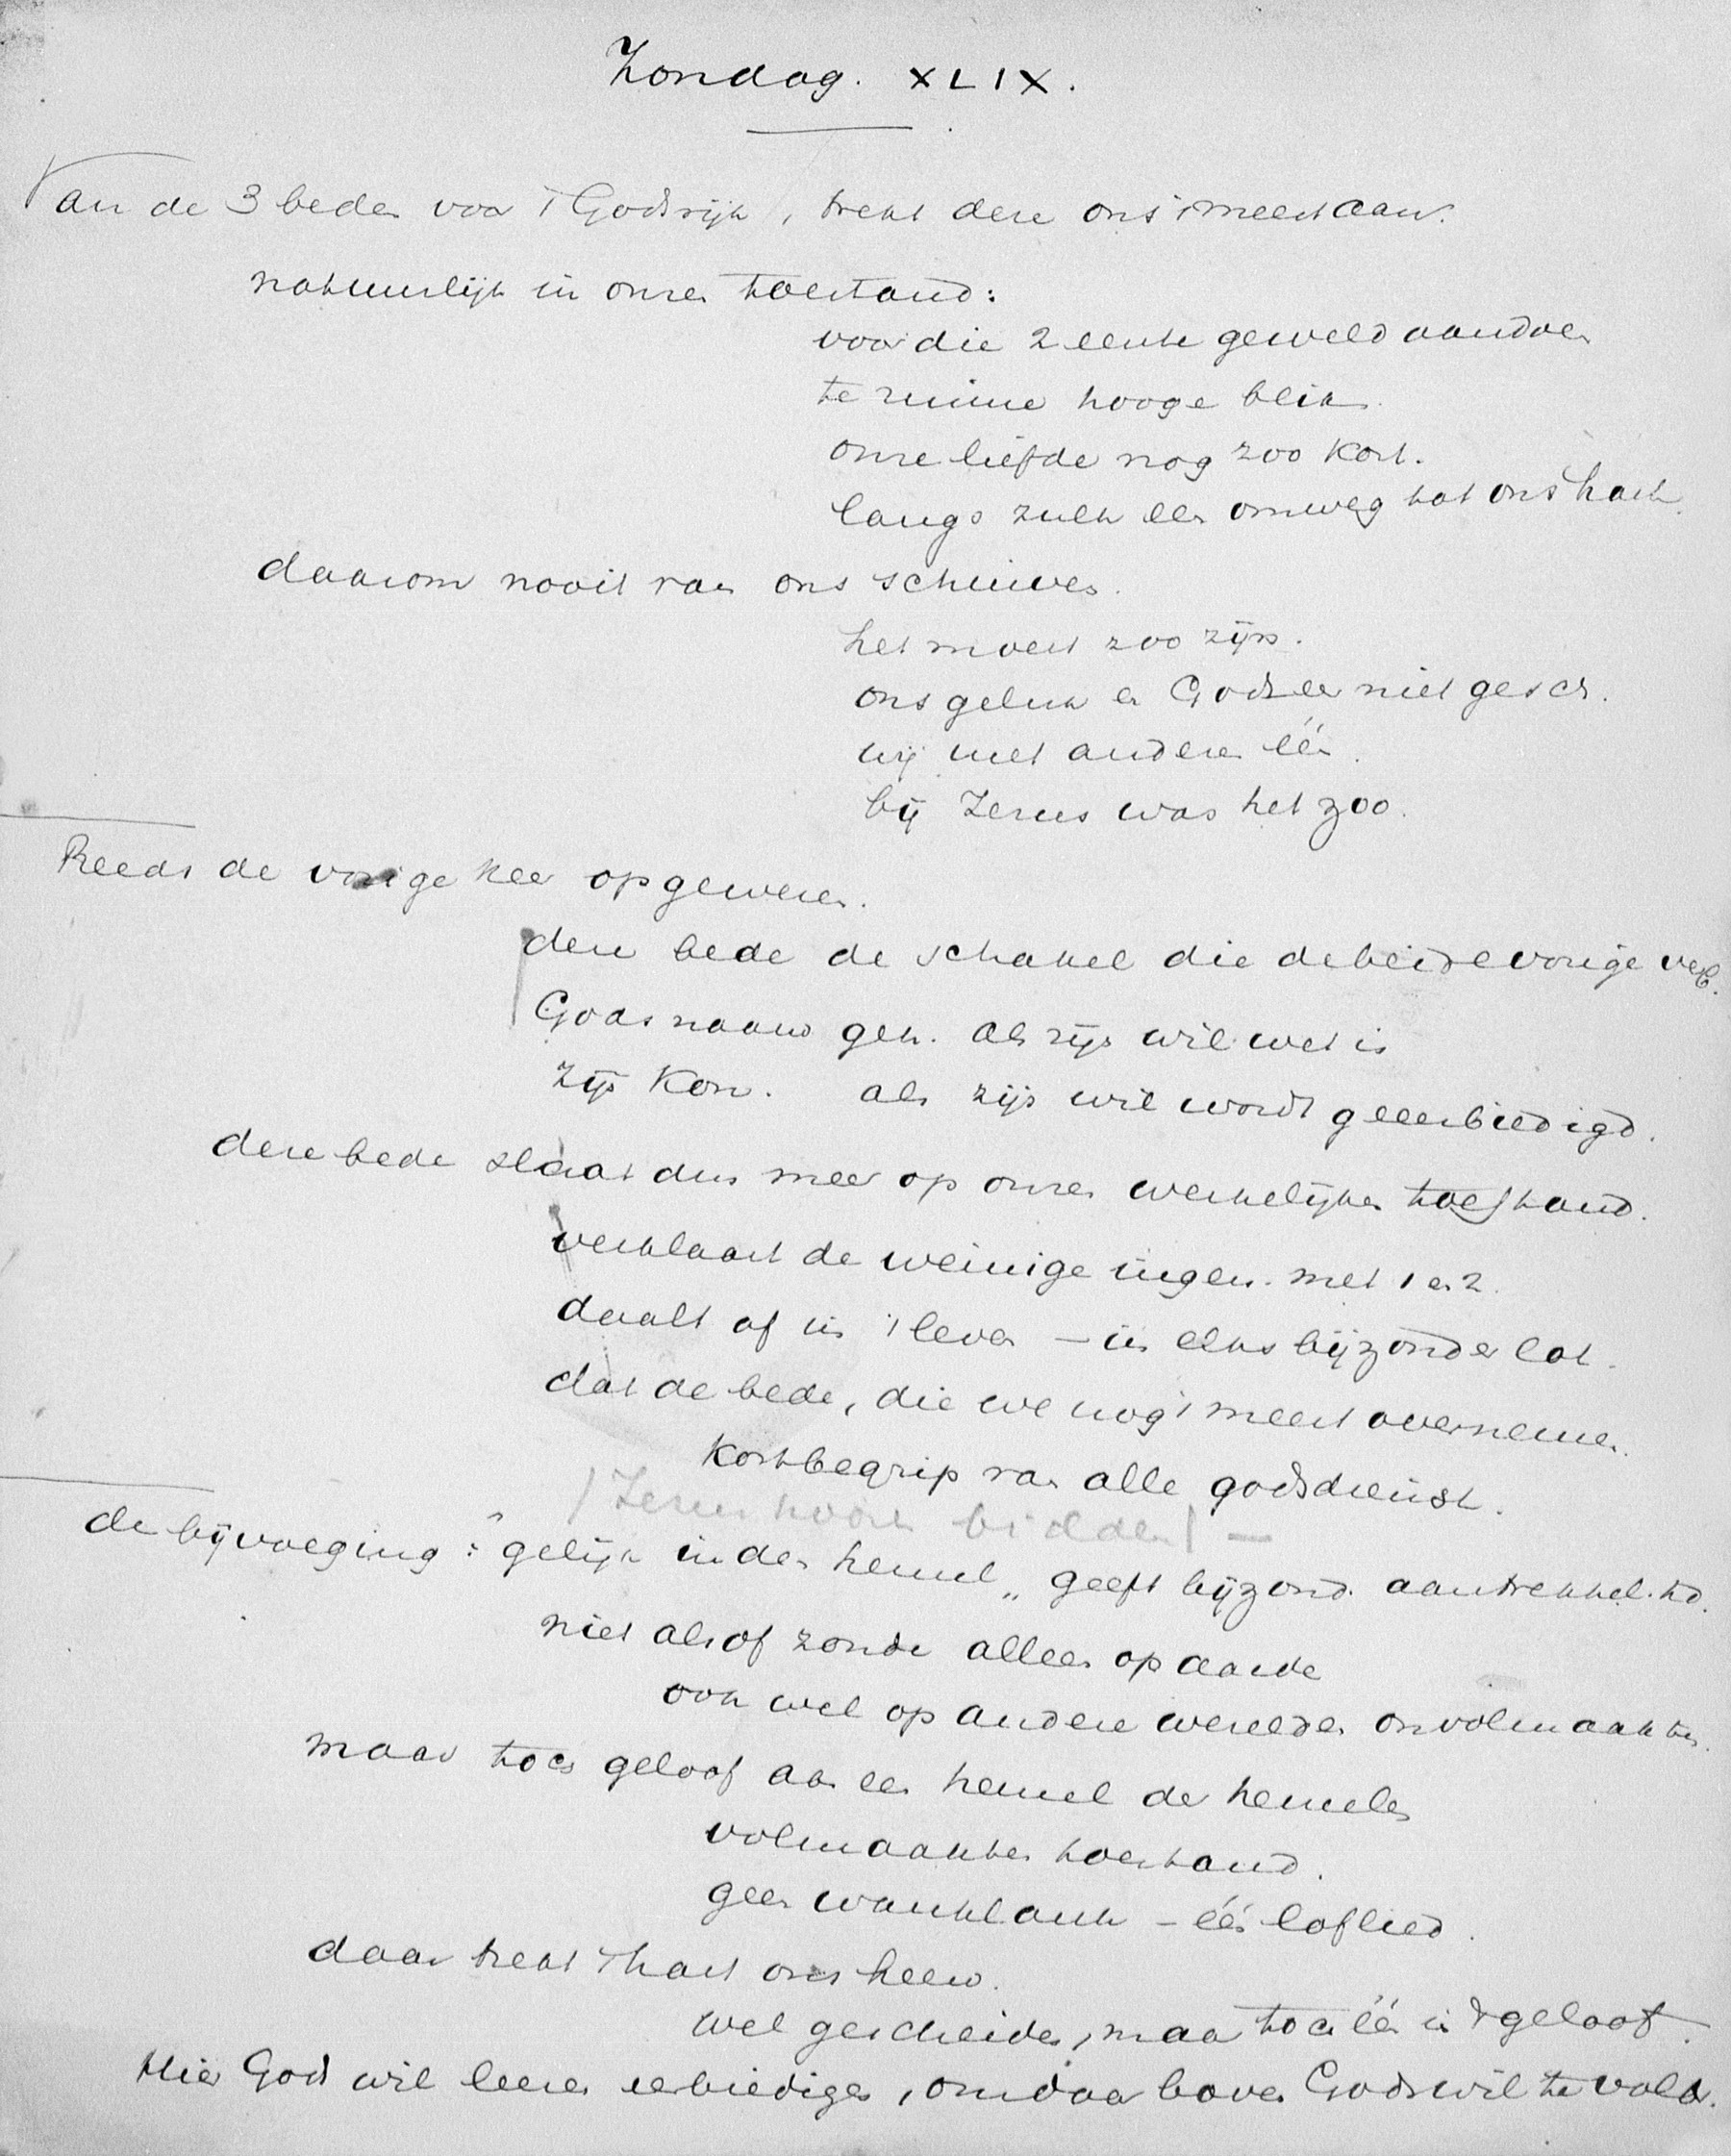 Zondag. XLIX.
Van de 3 beden voor 't Godsrijk, trekt deze ons 't meest aan.
natuurlijk in onzen toestand:
voor die 2 eerste geweld aandoen
te ruime hooge blik.
onze liefde nog zoo kort.
langs zulk een omweg tot ons hart.
daarom nooit van ons schuiven.
het moest zoo zijn.
ons geluk en Gods eer niet gesch.
wij met anderen één.
bij Jezus was het zoo.
Reeds de vorige keer opgewezen.
deze bede de schakel die de beide vorige verb.
Gods naam geh. als zijn wil wet is
zijn Kon. als zijn wil wordt geëerbiedigd.
deze bede slaat dus meer op onzen werkelijken toestand.
verklaart de weinige ingen. met 1 en 2.
daalt af in 't leven – in elks bijzonder lot.
dat de bede, die we nog 't meest overnemen.
Kortbegrip van alle godsdienst.
(Jezus hoort bidden) –
de bijvoeging: "gelijk in den hemel" geeft bijzond. aantrekkel.hd.
niet alsof zonde alleen op aarde
ook wel op andere werelden onvolmaakten.
maar toch geloof aan een hemel der hemelen
volmaakten toestand.
geen wanklank – één loflied.
daar trekt 't hart ons heen.
wel gescheiden, maar toch één in 't geloof.
Hier God wil leeren eerbiedigen, om daar boven Gods wil te vold.